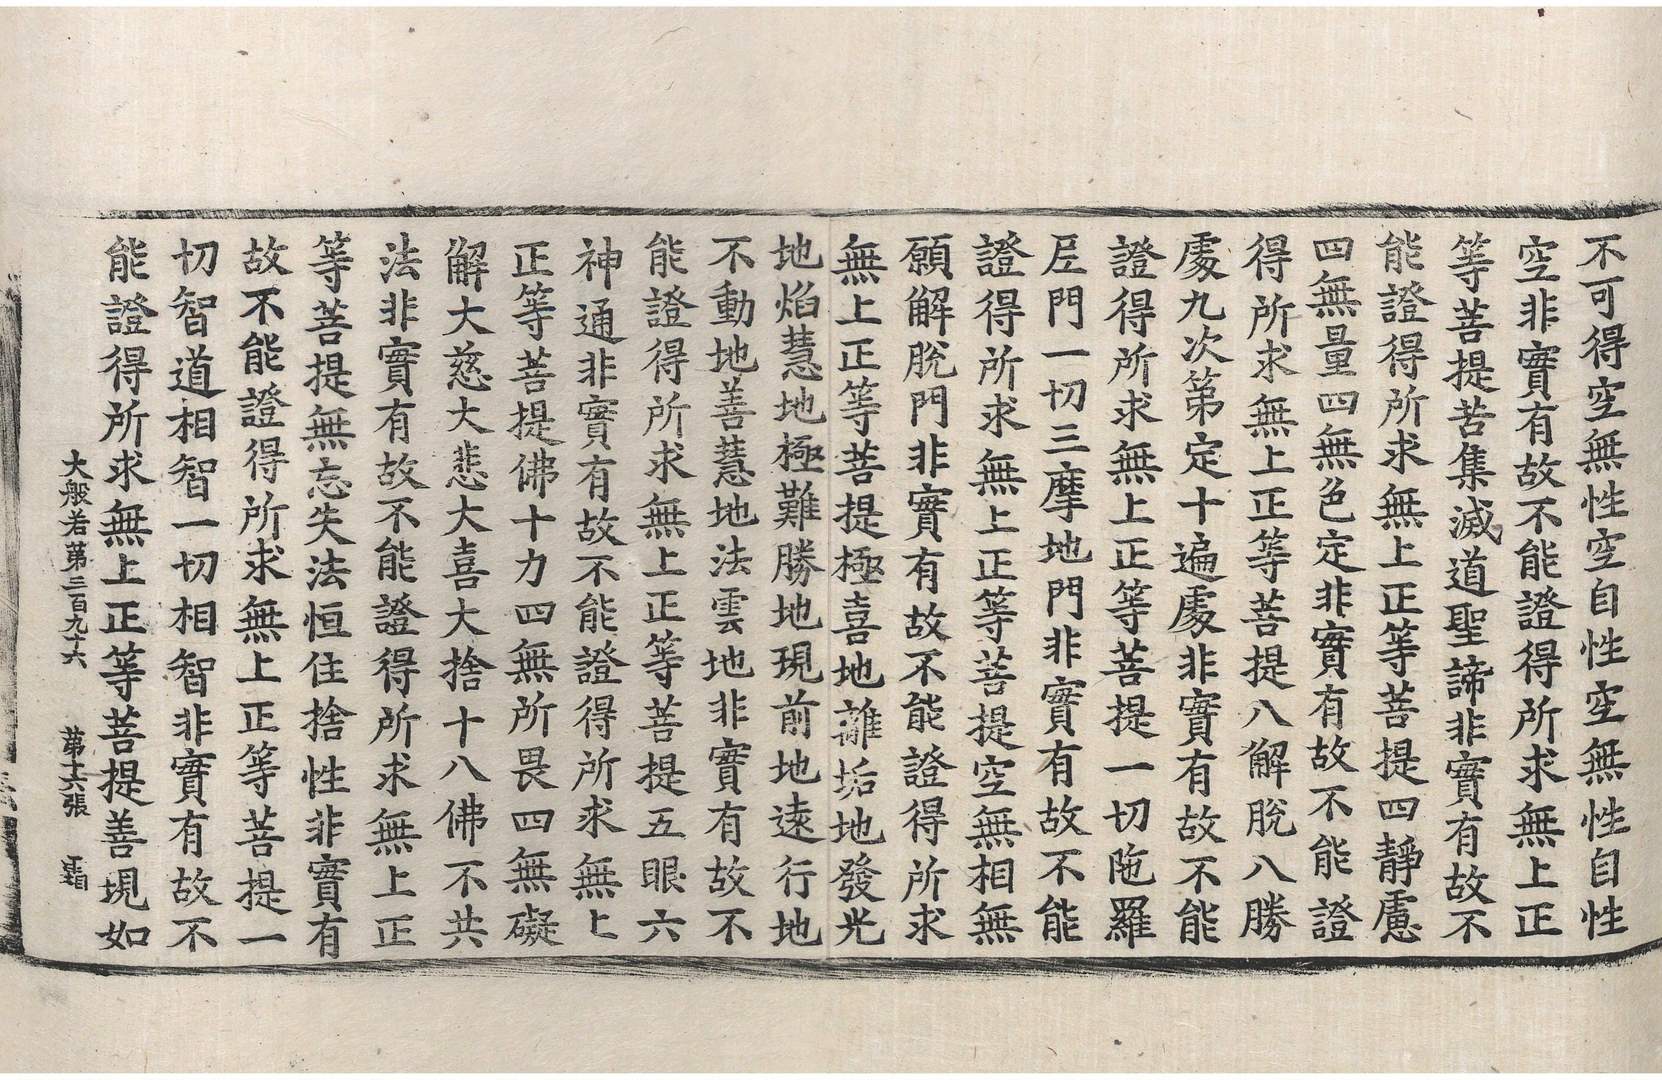 不可得空無性空自性空無性自性
空非實有故不能證得所求無上正
等菩提苦集滅道聖諦非實有故不
能證得所求無上正等菩提四靜慮
四無量四無色定非實有故不能證
得所求無上正等菩提八解脫八勝
處九次第定十遍處非實有故不能
證得所求無上正等菩提一切陁羅
尼門一切三摩地門非實有故不能
證得所求無上正等菩提空無相無
願解脫門非實有故不能證得所求
無上正等菩提極喜地離垢地發光
地焰慧地極難勝地現前地遠行地
不動地善慧地法雲地非實有故不
能證得所求無上正等菩提五眼六
神通非實有故不能證得所求無上
正等菩提佛十力四無所畏四無礙
解大慈大悲大喜大捨十八佛不共
法非實有故不能證得所求無上正
等菩提無忘失法恒住捨性非實有
故不能證得所求無上正等菩提一
切智道相智一切相智非實有故不
能證得所求無上正等菩提善現如
大般若第三百九十六 第十六張